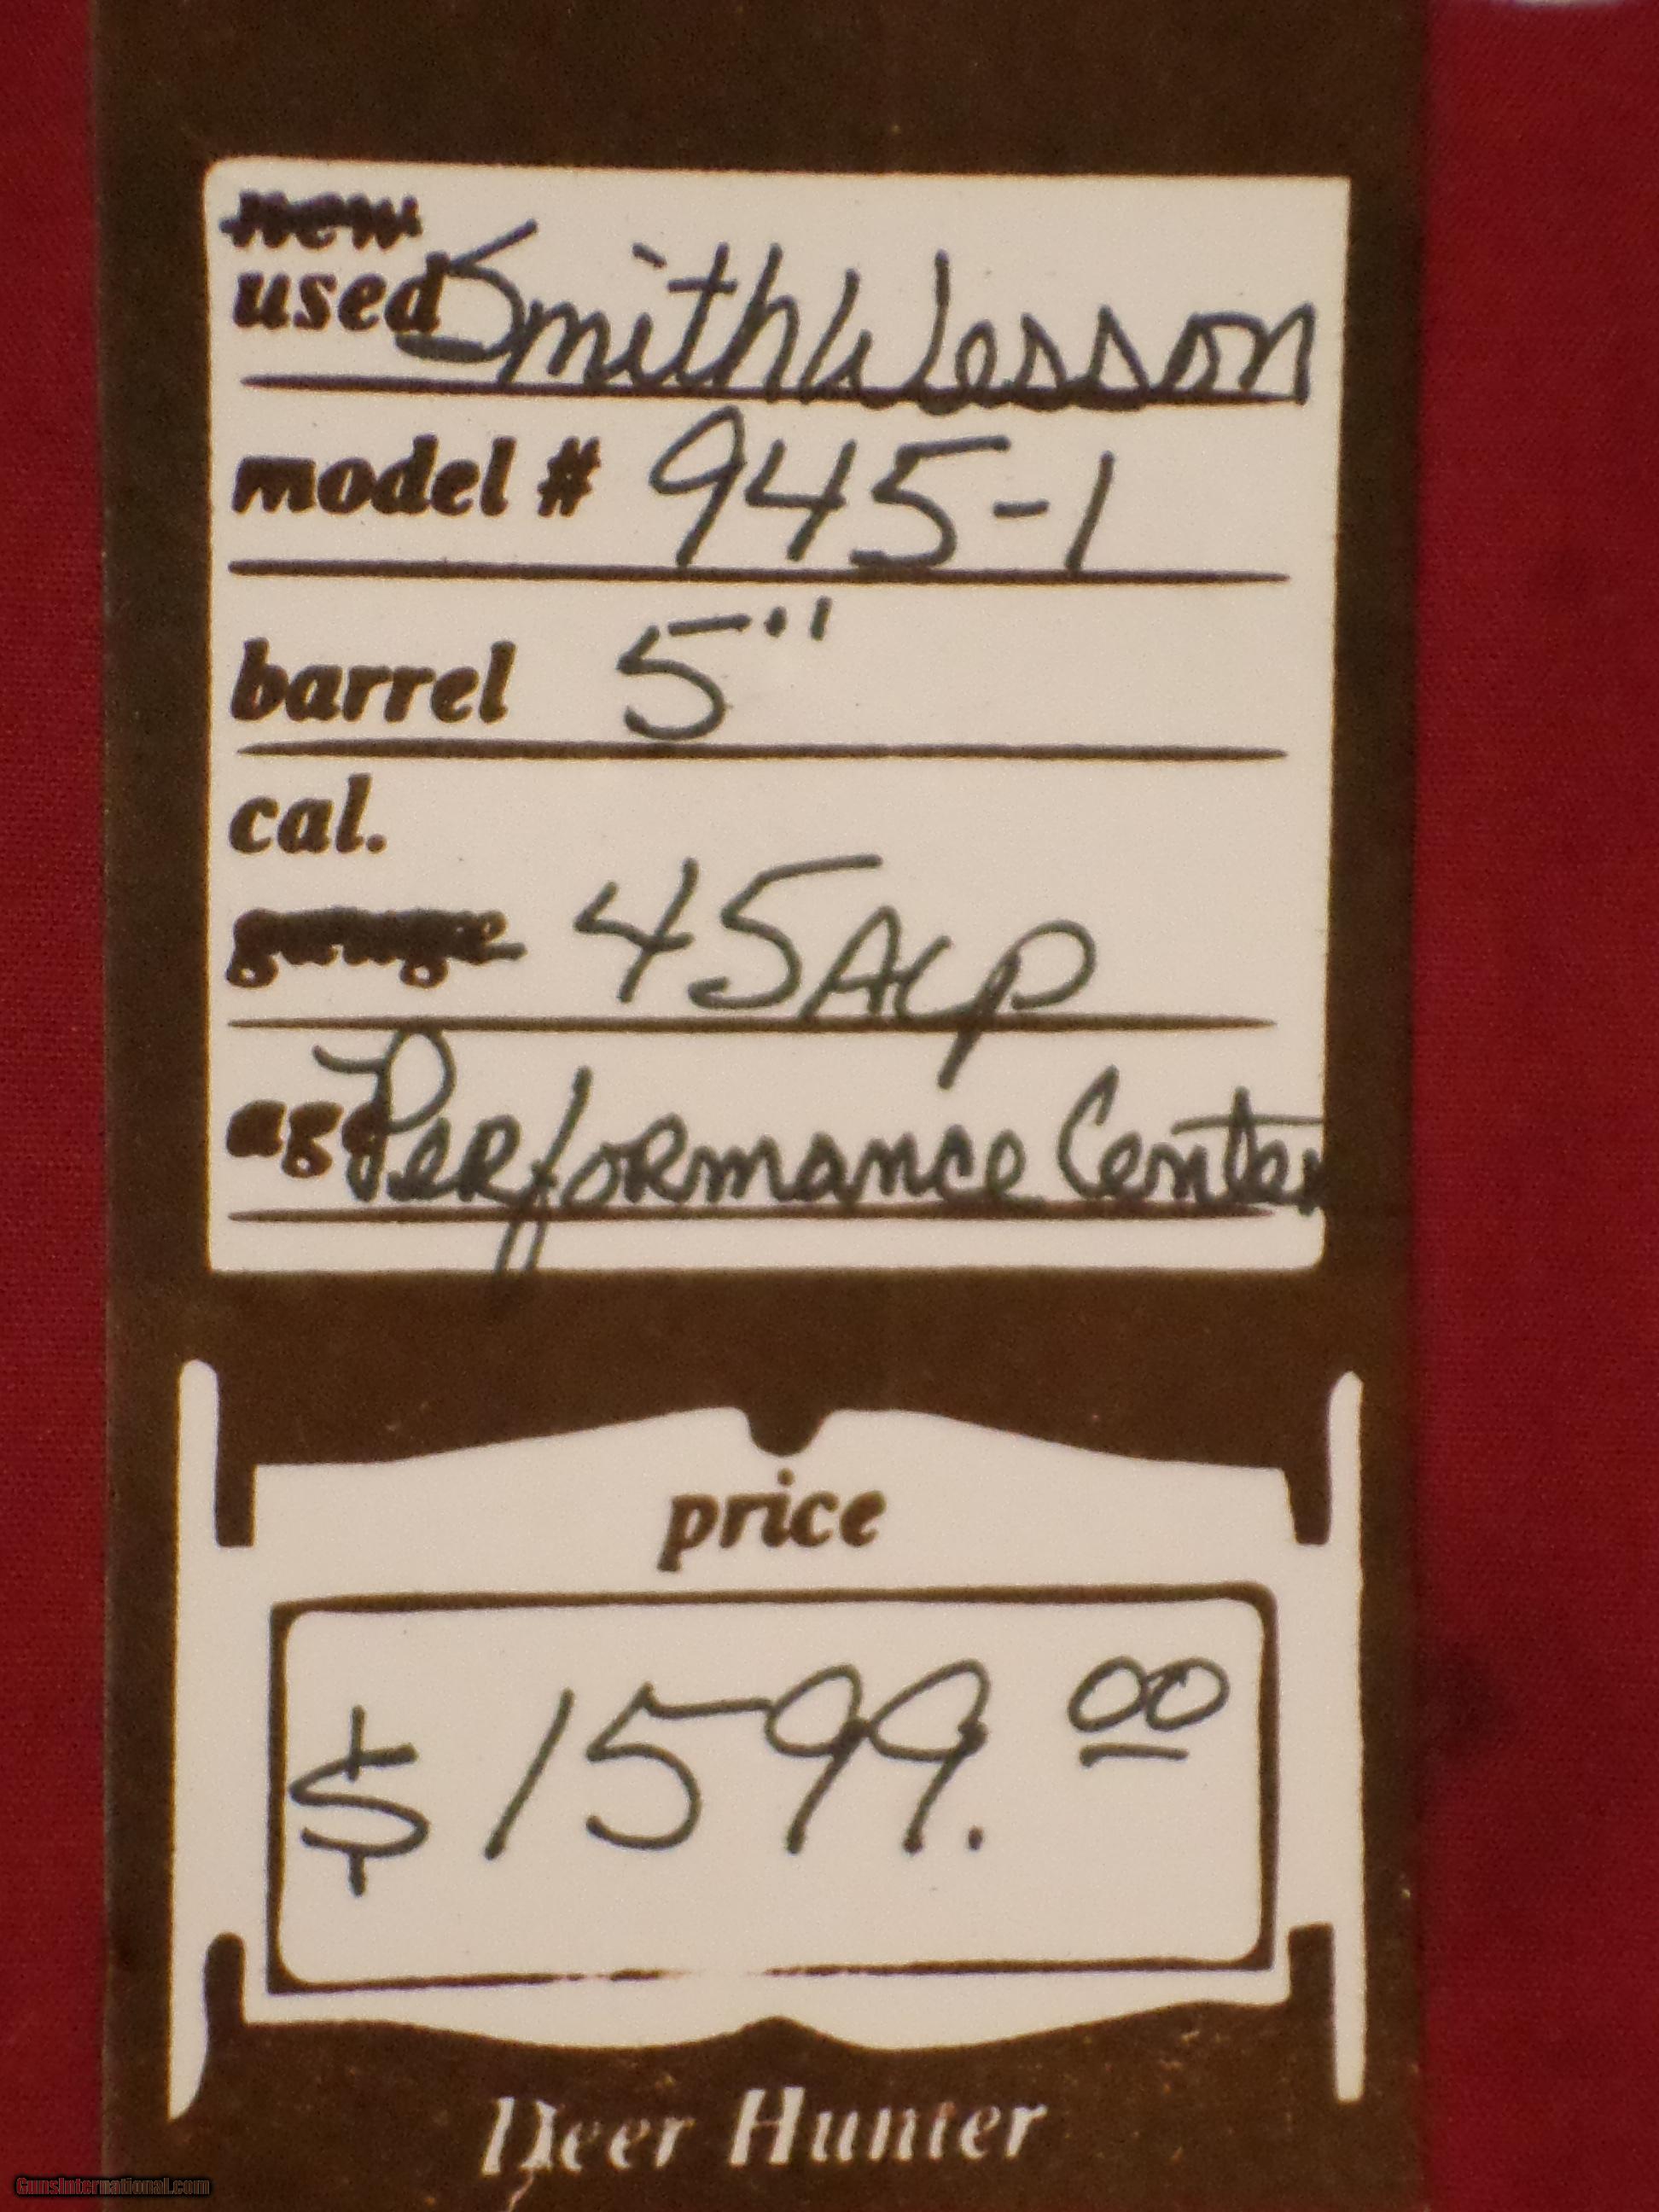 new
used Smith Wesson
model # 945-1
barrel 5"
cal.
gauge 45 ACP
age Performance Center
price
$1599.00
Deer Hunter
GunsInternational.com